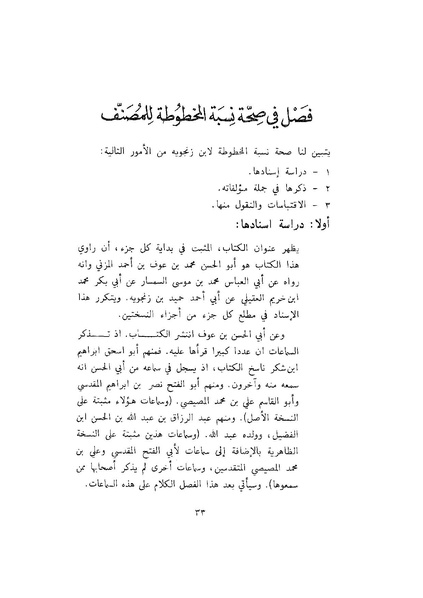 فَصْل في صِحّة نِسبَة المخطُوطة لِلمُصَنّف
يتبين لنا صحة نسبة المخطوطة لابن زنجويه من الأمور التالية:
١ - دراسة إسنادها.
٢ - ذكرها في جملة مؤلفاته.
٣ - الاقتباسات والنقول منها.
أولا: دراسة اسنادها:
يظهر عنوان الكتاب، المثبت في بداية كل جزء، أن راوي
هذا الكتاب هو أبو الحسن محمد بن عوف بن أحمد المزني وانه
رواه عن أبي العباس محمد بن موسى السمسار عن أبي بكر محمد
ابن خريم العقيلي عن أبي أحمد حميد بن زنجويه. ويتكرر هذا
الإسناد في مطلع كل جزء من أجزاء النسختين.
وعن أبي الحسن بن عوف انتشر الكتـــاب. اذ تـــذكر
السماعات ان عددا كبيرا قرأها عليه. فمنهم أبو اسحق ابراهيم
ابن شكر ناسخ الكتاب، اذ يسجل في سماعه من أبي الحسن انه
سمعه منه وآخرون. ومنهم أبو الفتح نصر بن ابراهيم المقدسي
وأبو القاسم علي بن محمد المصيصي. (وسماعات هؤلاء مثبتة على
النسخة الأصل). ومنهم عبد الرزاق بن عبد الله بن الحسن ابن
الفضيل، وولده عبد الله. (وسماعات هذين مثبتة على النسخة
الظاهرية بالإضافة إلى سماعات لأبي الفتح المقدسي وعلي بن
محمد المصيصي المتقدمين، وسماعات أخرى لم يذكر أصحابها ممن
سمعوها). وسيأتي بعد هذا الفصل الكلام على هذه السماعات.
٣٣